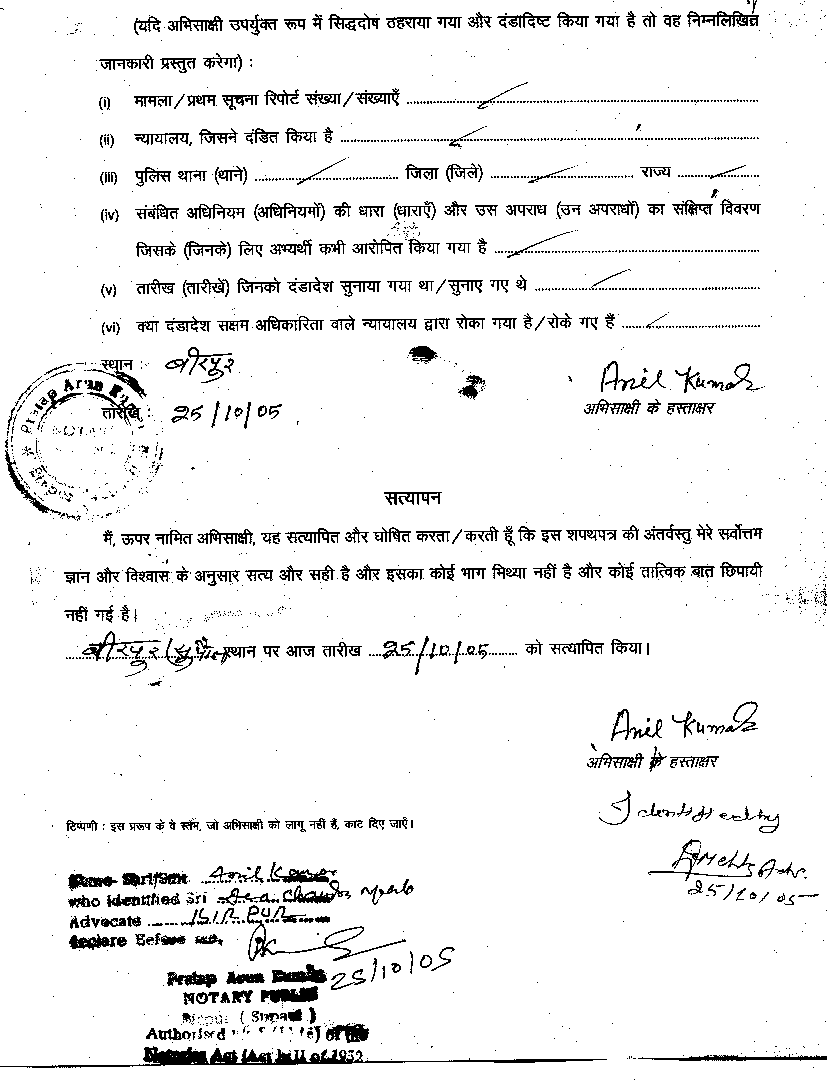 (यदि अभिसाक्षी उपर्युक्त रूप में सिद्धदोष ठहराया गया और दंडादिष्ट किया गया है तो वह निम्नलिखित
जानकारी प्रस्तुत करेगा) :
(i) मामला/प्रथम सूचना रिपोर्ट संख्या/संख्याएँ
(ii) न्यायालय, जिसने दंडित किया है
(iii) पुलिस थाना (थाने) जिला (जिले) राज्य
(iv) संबंधित अधिनियम (अधिनियमों) की धारा (धाराएँ) और उस अपराध (उन अपराधों) का संक्षिप्त विवरण
जिसके (जिनके) लिए अभ्यर्थी कभी आरोपित किया गया है
(v) तारीख (तारीखें) जिनको दंडादेश सुनाया गया था/सुनाए गए थे
(vi) क्या दंडादेश सक्षम अधिकारिता वाले न्यायालय द्वारा रोका गया है/रोके गए हैं
स्थान : बीरपुर
Anil Kumar
तारीख : 25/10/05
अभिसाक्षी के हस्ताक्षर
Pratap Arun
NOTARY
सत्यापन
मैं, ऊपर नामित अभिसाक्षी, यह सत्यापित और घोषित करता/करती हूँ कि इस शपथपत्र की अंतर्वस्तु मेरे सर्वोत्तम
ज्ञान और विश्वास के अनुसार सत्य और सही है और इसका कोई भाग मिथ्या नहीं है और कोई तात्विक बात छिपायी
नहीं गई है।
बीरपुर (सुपौल) स्थान पर आज तारीख 25/10/05 को सत्यापित किया।
Anil Kumar
अभिसाक्षी के हस्ताक्षर
टिप्पणी : इस प्ररूप के वे स्तंभ, जो अभिसाक्षी को लागू नहीं हैं, काट दिए जाएँ।
Anil Kumar
who identified Sri
Advocate BIRPUR
declare Before me,
25/10/05
25/10/05
Pratap Arun Kumar
NOTARY PUBLIC
Birpur (Supaul)
Authorised of the
Notaries Act (Act of 1952